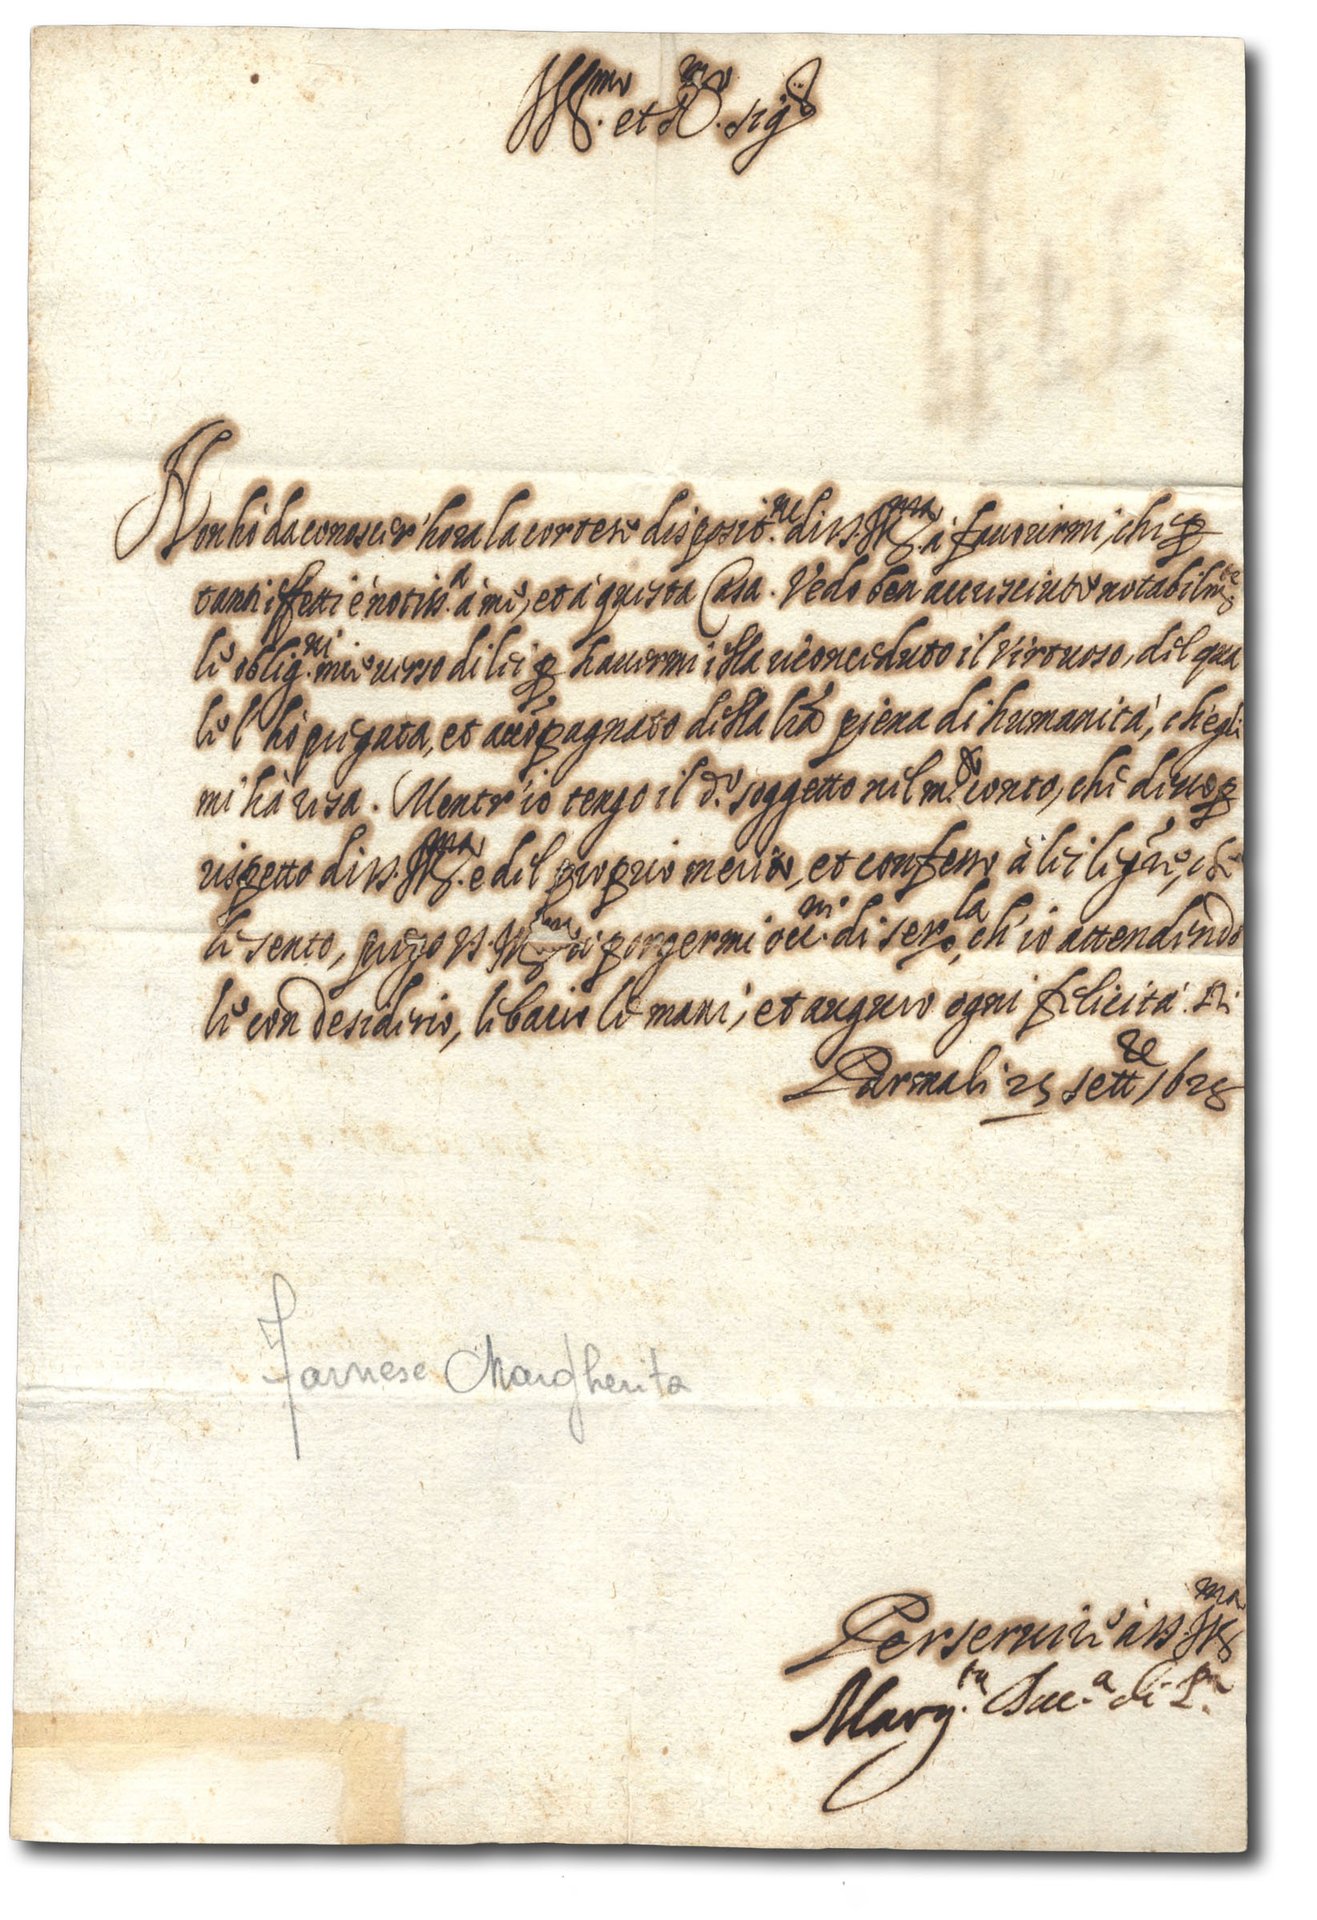 Ill.mo et R.mo sig.r
Non hò da conoscer' hora la cortese disposit.ne di V.S. Ill.ma à fauorirmi, che p
tanti effetti è notiss.a à me, et à questa Casa. Vedo ben accresciute notabilm.te
le oblig.ni mie verso di lei p hauermi ella riconceduto il Virtuoso, del qua
le l' hò pregata, et accōpagnato della lrā piena di humanità, ch'egli
mi hà resa. Mentr'io tengo il d.o soggetto nel m.o conto, che deuo p
rispetto di V.S. Ill.ma e del proprio merito, et confesso à lei le grē, che
le sento, prego V.S. Ill.ma à porgermi occ.ni di seru.la, ch' io attendendo
le con desiderio, le bacio le mani, et auguro ogni felicità. Di
Parma li 25 sett.re 1628
Farnese Margherita
Per seruire à V.S. Ill.ma
Marg.ta Duc.a di P.a